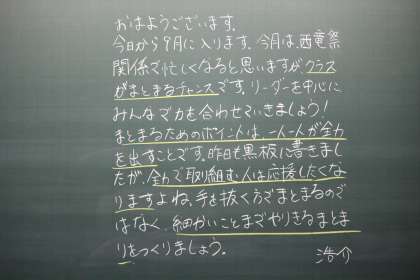 おはようございます。
今日から9月に入ります。今月は、西竜祭
関係で忙しくなると思いますが、クラス
がまとまるチャンスです。リーダーを中心に
みんなで力を合わせていきましょう!
まとまるためのポイントは、一人一人が全力
を出すことです。昨日も黒板に書きまし
たが、全力で取り組む人は応援したくな
りますよね。手を抜く方でまとまるので
はなく、細かいことまでやりきるまとま
りをつくりましょう。
浩介